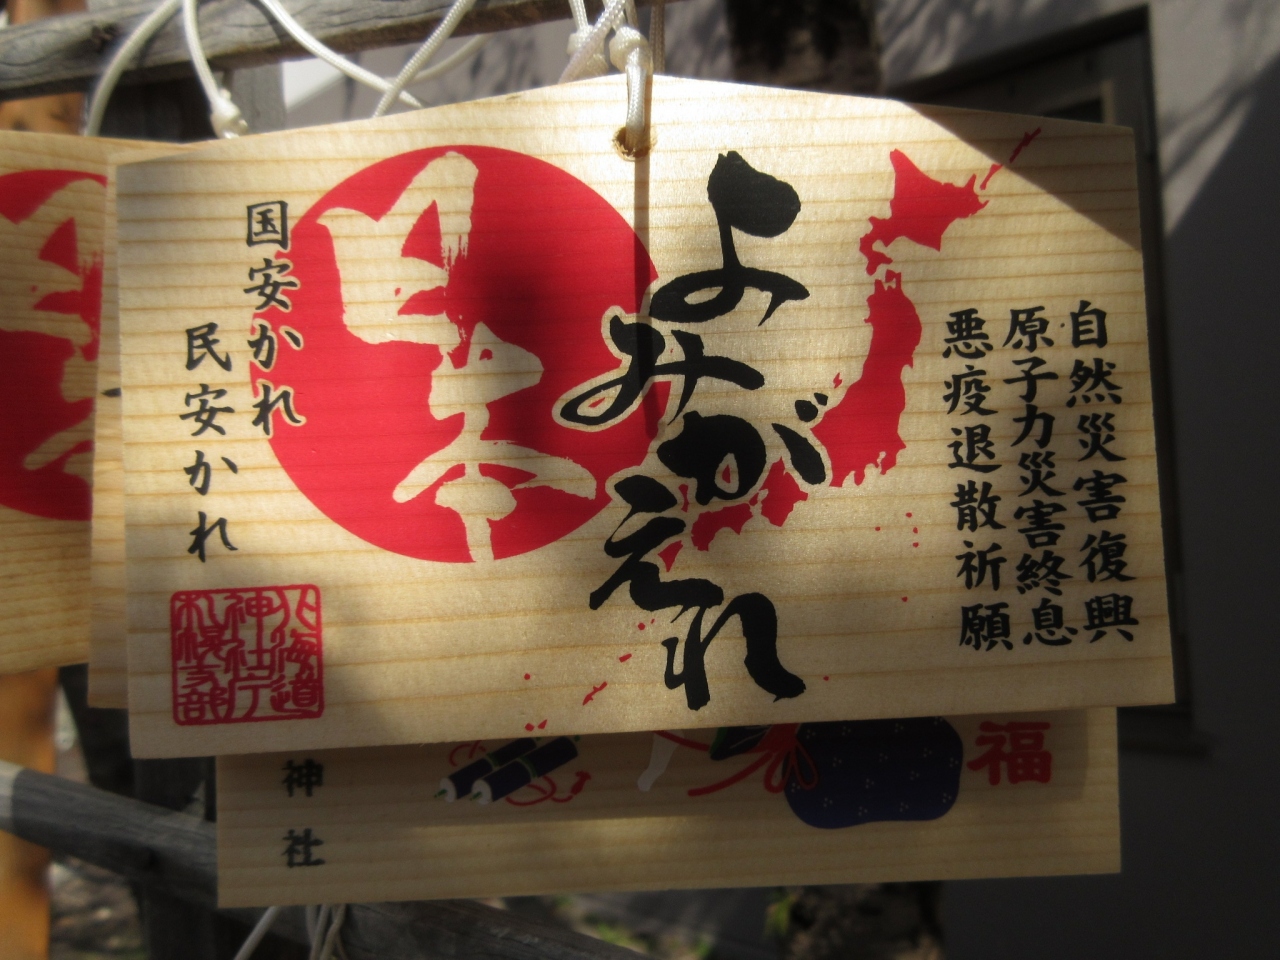 自然災害復興
原子力災害終息
悪疫退散祈願
よみがえれ
日本
国安かれ
民安かれ
北海道
神社庁
札幌支部
福
神社